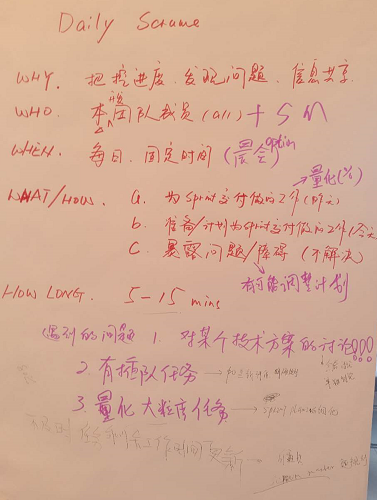 Daily Scrume
WHY. 把控进度、发现问题、信息共享.
WHO. 本团队成员(all) + SM
WHEN. 每日、固定时间 (晨会) option
量化(%)
WHAT/HOW. a. 为Sprint交付做的工作(昨天)
b. 准备/计划为Sprint交付做的工作(今天
c. 暴露问题/障碍 (不解决)
有可能调整计划
HOW LONG. 5-15 mins
遇到的问题 1. 对某个技术方案的讨论!!!
2. 有插队任务
3. 量化大粒度任务